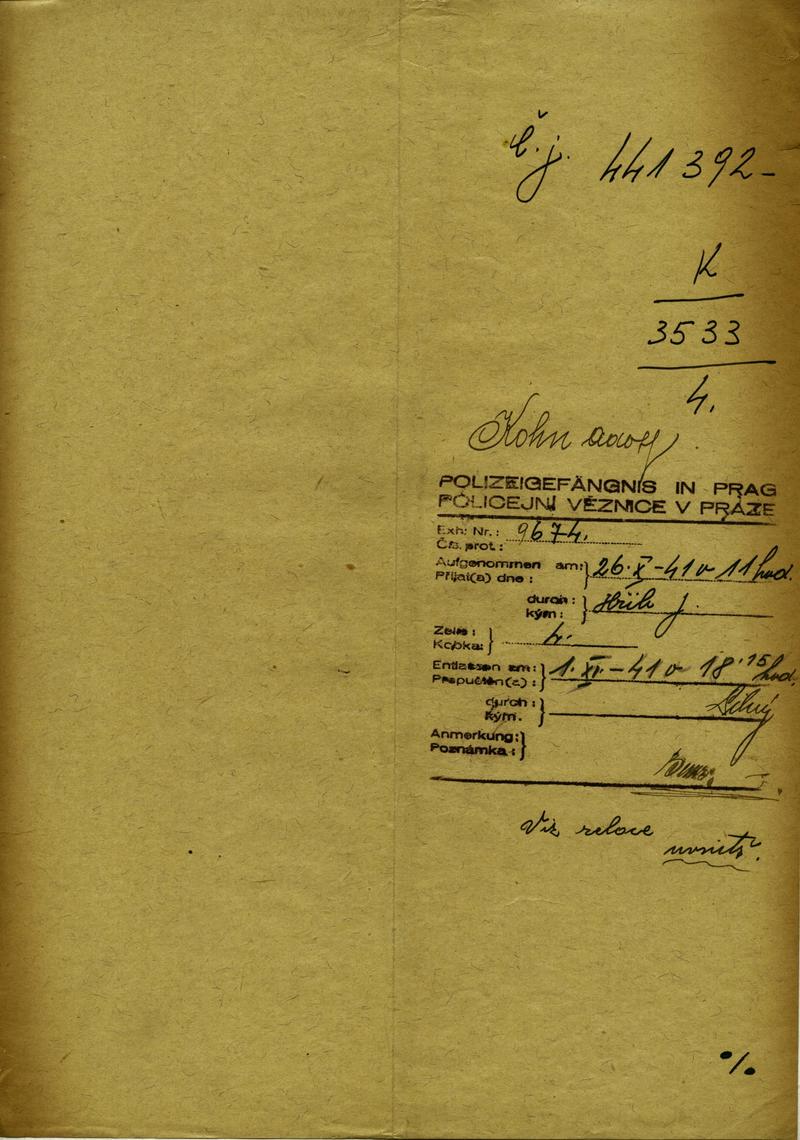 Č.j. 441392-
K
3533
4.
Kohn Adolf
POLIZEIGEFÄNGNIS IN PRAG
POLICEJNÍ VĚZNICE V PRAZE
Exh. Nr.: 9674.
Čís. prot.:
Aufgenommen am: } 26.X-41 v 11 hod.
Přijat(a) dne: }
durch: }
kým: }
Zelle: } 4.
Kobka: }
Entlassen am: } 1.XI.-41 v 18.15 hod.
Propuštěn(a): }
durch: }
kým. }
Anmerkung: }
Poznámka: }
Viz relace
uvnitř.
●/.